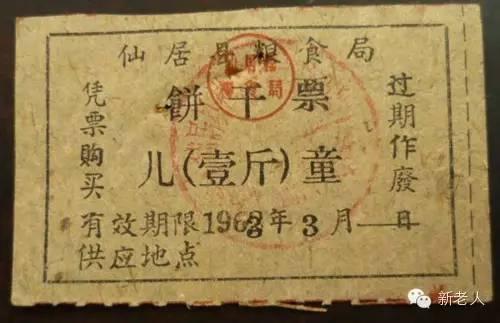 仙居县粮食局
餅干票
儿(壹斤)童
凭票购买
过期作廢
有效期限1963年3月 日
供应地点
新老人